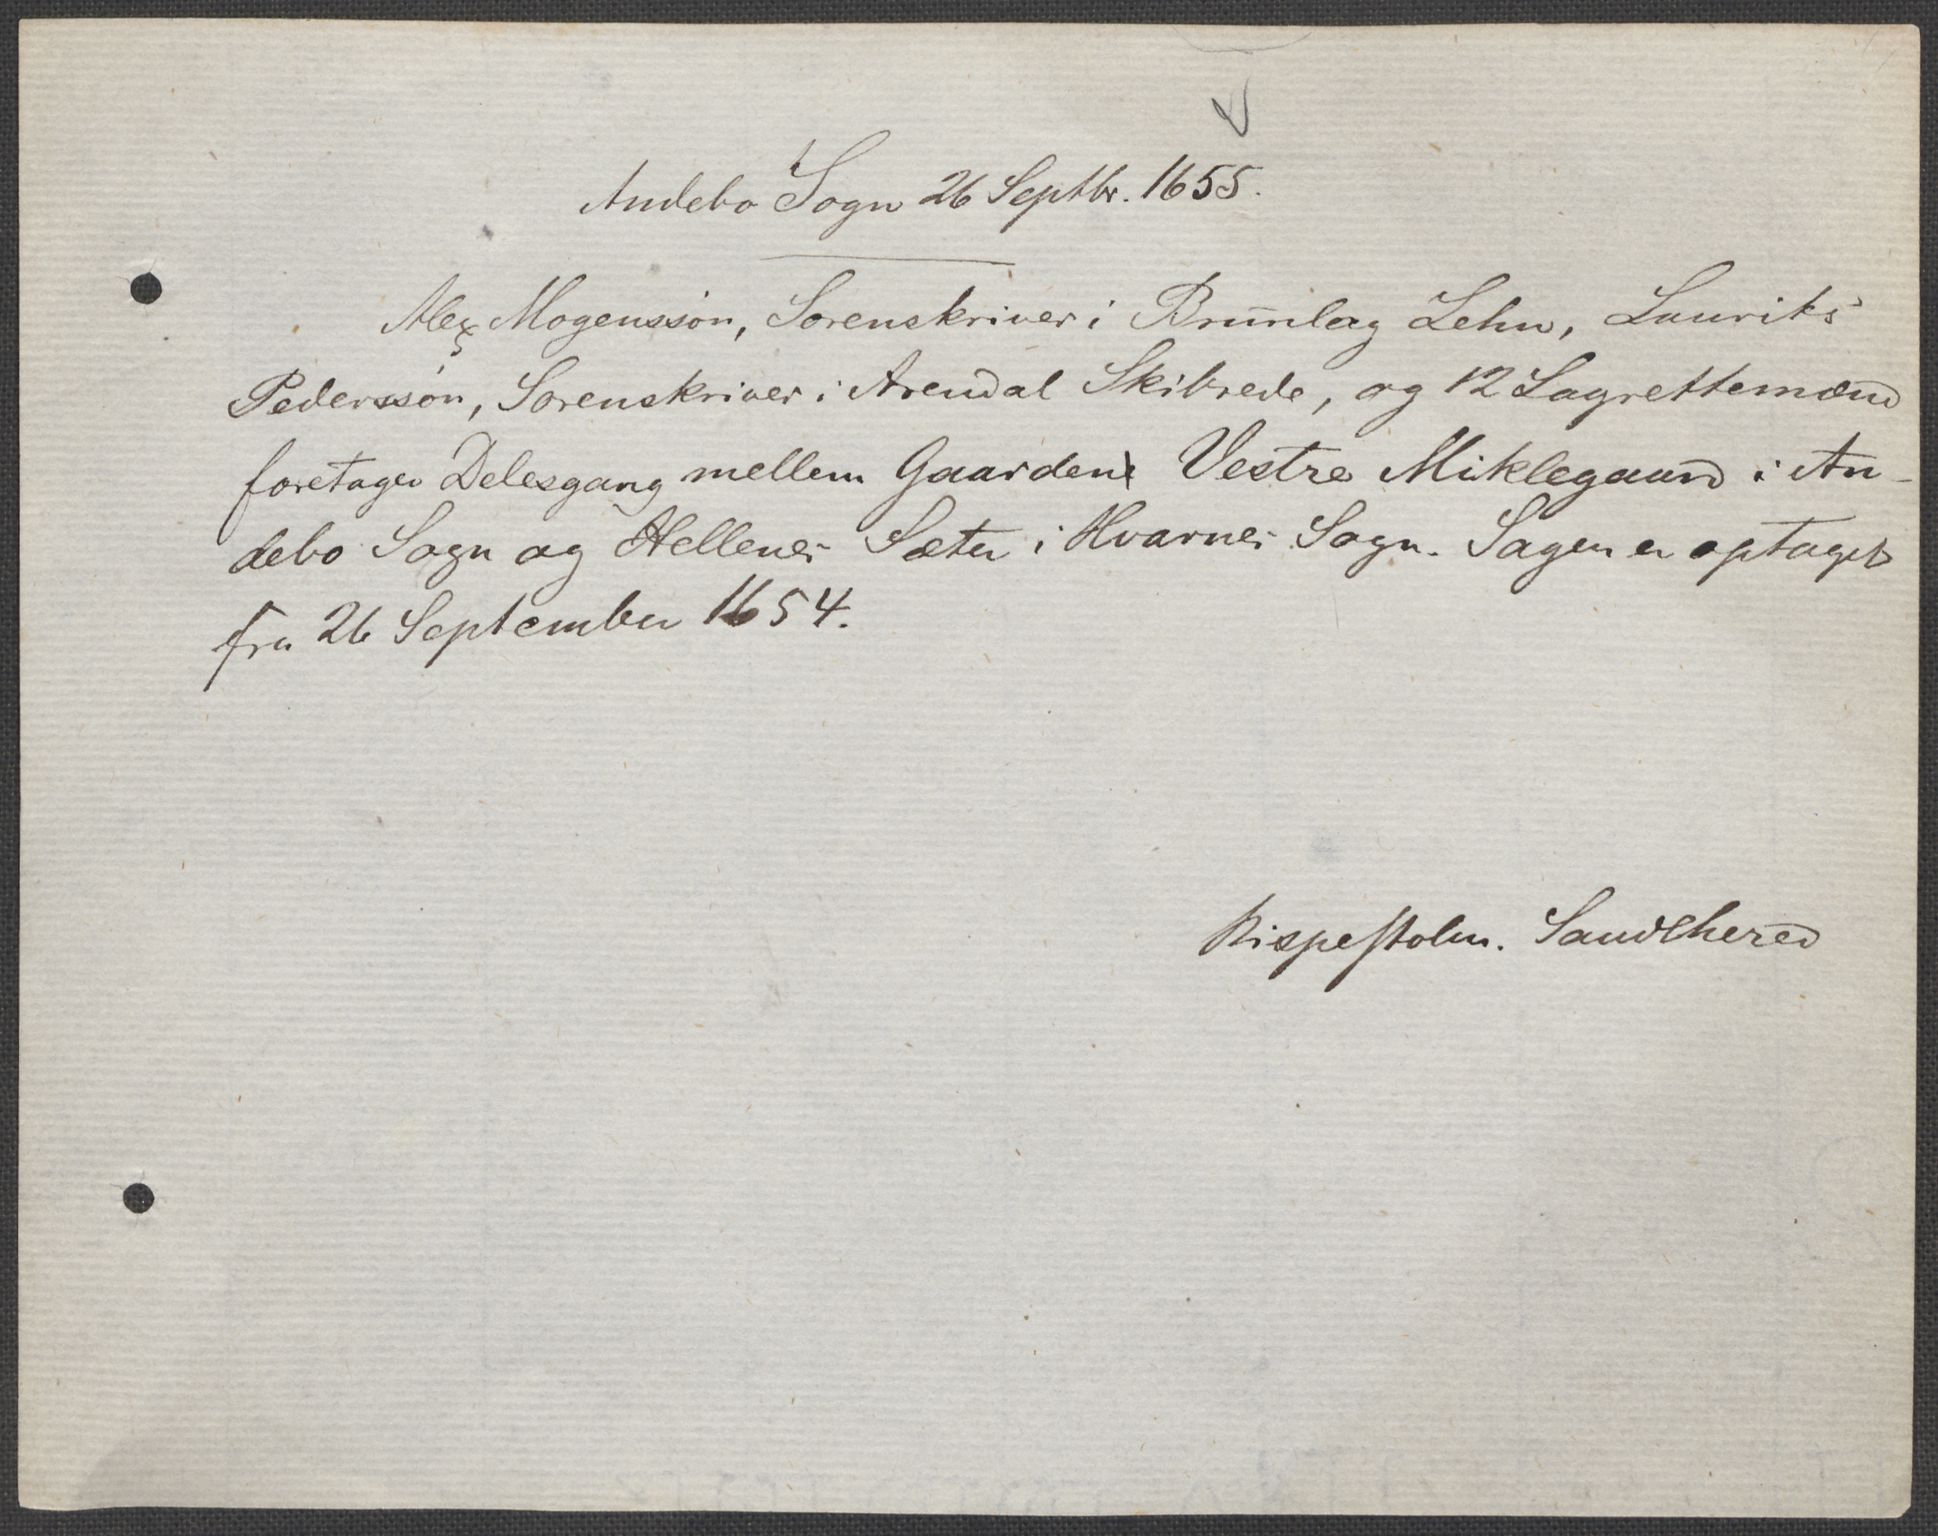 Andebo Sogn 26 Septbr. 1655.
Alex Mogenssøn, Sorenskriver i Brunlag Lehn, Lauriks
Pederssøn, Sorenskriver i Arendal Skibrede, og 12 Lagrettemænd
foretager Delesgang mellem Gaarden Vestre Miklegaard i An-
debo Sogn og Hellenes Sæter i Hvarnes Sogn. Sagen er optaget
fra 26 September 1654.
Rispeholm. Sandeherred